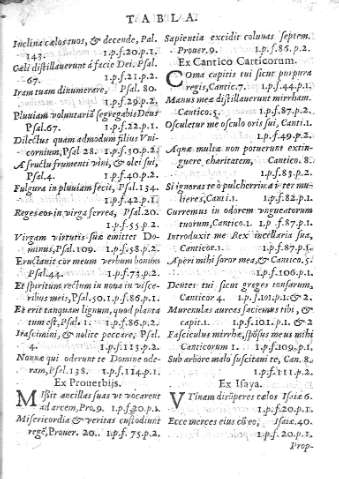 TABLA.
Inclina cælos tuos, & descende, Psal.
143. 1.p.f.20.p.1.
Cæli distillauerunt à facie Dei. Psal.
67. 1.p.f.21.p.2.
Iram tuam dinumerare, Psal. 80.
1.p.f.29.p.2.
Pluuiam voluntariã segregabis Deus
Psal.67. 1.p.f.22.p.1.
Dilectus quem admodum filius Vni-
cornium, Psal 28. 1.p.f.30.p.2.
A fructu frumenti vini, & olei sui,
Psal.4. 1.p.f.40.p.2.
Fulgura in pluuiam fecit, Psal.134.
1.p.f.42.p.1.
Reges eos in virga ferrea, Psal.20.
1.p.f.55.p.2.
Virgam virtutis suæ emittet Do-
minus, Psal.109. 1.p.f.58.p.2.
Eructauit cor meum verbum bonum
Psal.44. 1.p.f.73.p.2.
Et spiritum rectum in noua in visce-
ribus meis, Psal.50.1.p.f.86.p.1.
Et erit tanquam lignum, quod planta
tum est, Psal.1. 1.p.f.86.p.2.
Irascimini, & nolite peccare, Psal.
4. 1.p.f.113.p.2.
Nonne qui oderunt te Domine ode-
ram, Psal.138. 1.p.f.114.p.1.
Ex Prouerbijs.
Missit ancillas suas vt vocarent
ad arcem, Pro.9. 1.p.f.20.p.1.
Misericordia & veritas custodiunt
regẽ, Prouer. 20.. 1.p.f.75.p.2.
Sapientia excidit colunas septem.
Prouer.9. 1.p.f.86.p.2.
Ex Cantico Canticorum.
Coma capitis tui sicut purpura
regis, Cantic.7. 1.p.f.44.p.1.
Manus meæ distillauerunt mirrham.
Cantico.5. 1.p.f.87.p.2.
Osculetur me osculo oris sui, Canti.1.
1.p.f.49.p.2.
Aquæ multæ non potuerunt extin-
guere, charitatem, Cantico. 8.
1.p.f.83.p.2.
Si ignoras te ò pulcherrima i ter mu-
lieres, Canti.1. 1.p.f.82.p.1.
Curremus in odorem vnguentorum
tuorum, Cantico.1. 1.p.f.87.p.1.
Introduxit me Rex in cellaria sua,
Cantico.1. 1.p.f.87.p.1.
Aperi mihi soror mea, & Cantico.5.
1.p.f.106.p.1.
Dentes tui sicut greges tonsarum,
Canticor 4. 1.p.f.101.p.1.& 2.
Murenulas aureas faciemus tibi, &
capit.1. 1.p.f.101.p.1. & 2
Fasciculus mirrhæ, spõsus meus mihi
Canticorum 1. 1.p.f.109.p.1.
Sub arbore malo suscitaui te, Can. 8.
1.p.f.111.p.2.
Ex Isaya.
Vtinam dirũperes cælos Isaiæ 6.
1.p.f.20.p.1.
Ecce merces eius cũ eo, Isaiæ.40.
1.p.f.20.p.1.
Prop-